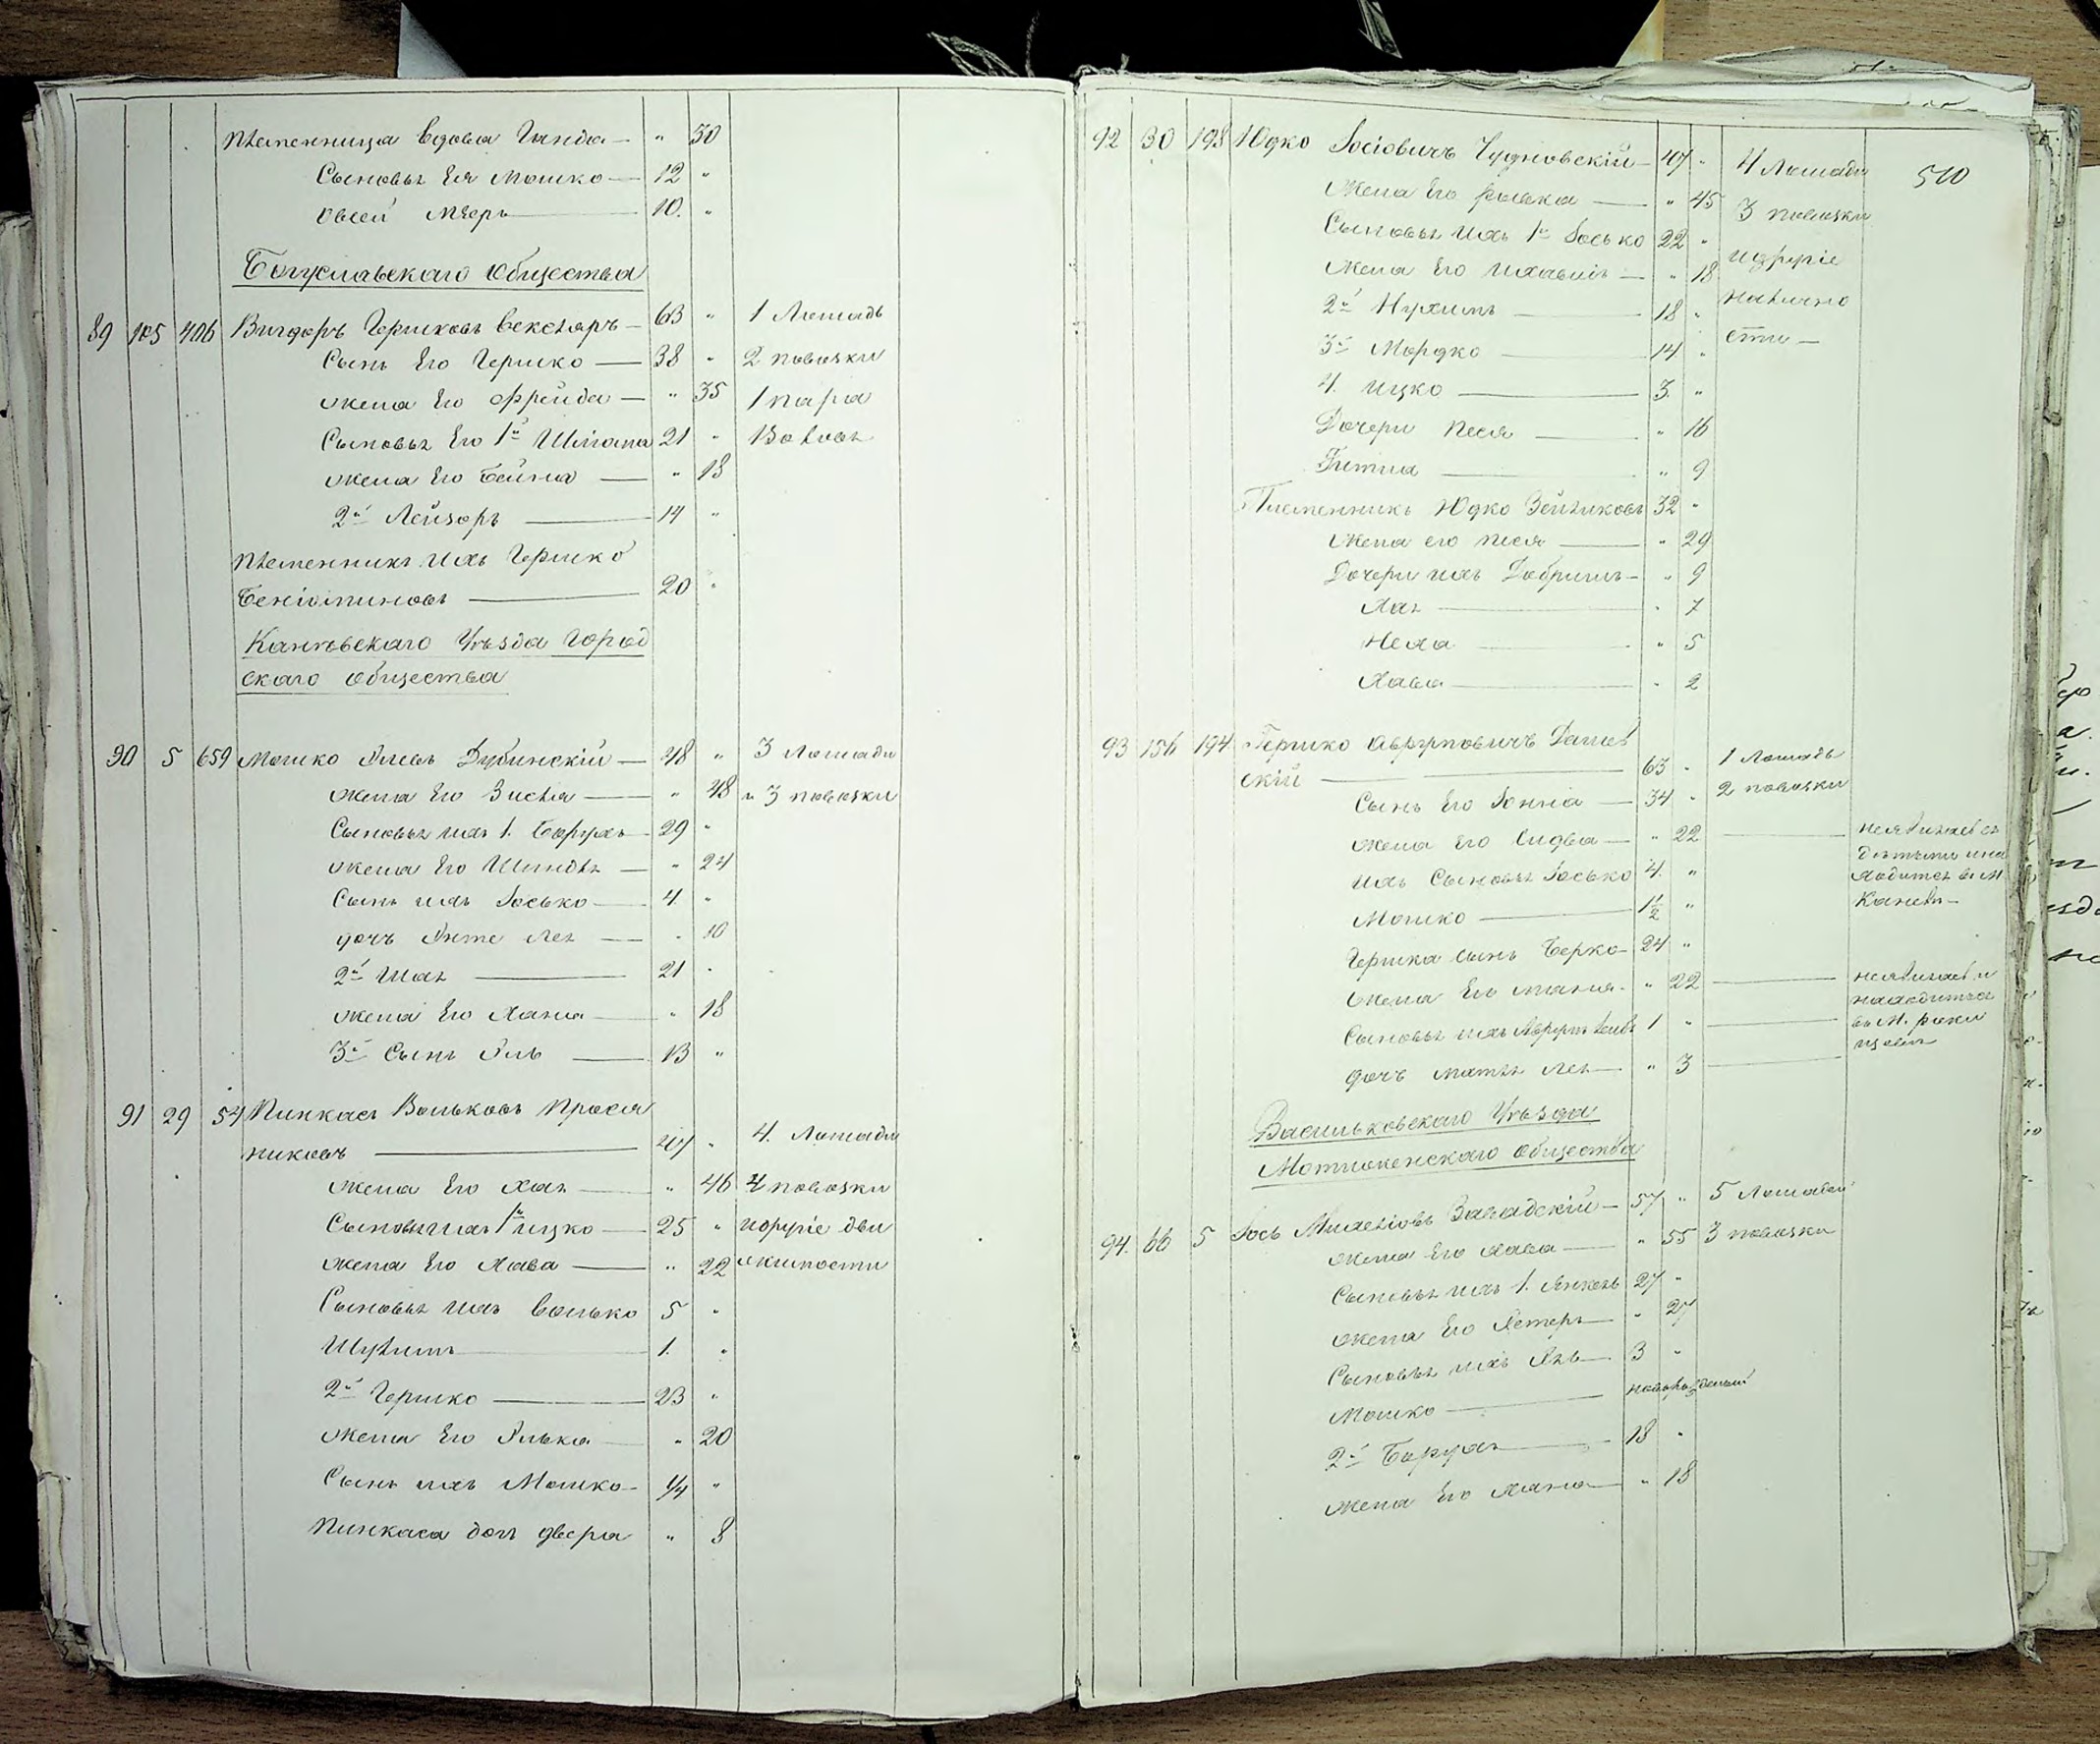 Племенница вдова Гинда — " 30
Сыновья Ея Мошко — 12 "
Овсей Меерь — 10. "
Богуславскаго Общества
89 105 406 Вигдоръ Гершковъ Вексляръ — 63 " 1 Лошадь
Сынъ Его Гершко — 38 " 2 повозки
жена Его Фрейда — " 35 1 пара
Сыновья Его 1й 21 " Воловъ
жена Его Бейна — " 18
2й Лейзоръ — 14 "
Племенникъ Ихъ Гершко
Беніоминовъ — 20 "
Каневскаго Уѣзда Город
скаго Общества
90 5 659 Мошко Дубинскій — 48 " 3 Лошади
жена Его Зисля — " 48 и 3 повозки
Сыновья ихъ 1. Борухъ 29 "
жена Его Шиндля — " 24
Сынъ ихъ Іосько — 4. "
дочь Энте Лея — " 10
2й — 21 "
жена Его Хана — " 18
3й Сынъ Эль — 13 "
91 29 54 Пинкасъ Вольковъ Прося
никовъ — 47 " 4. Лошади
жена Его Хая — " 46 4 повозки
Сыновья ихъ 1й Ицко — 25 " и другіе дви
жена Его Хава — " 22 жимости
Сыновья ихъ Волько 5 "
Шулимъ — 1. "
2й Гершко — 23 "
жена Его Элька — " 20
Сынъ ихъ Мошко — 1/4 "
Пинкаса доч двера " 8
92 30 198 Юдко Іосіовичъ Чудновскій — 47 " 4 Лошади 510
Жена Его Рывка — " 45 3 повозки
Сыновья ихъ 1й Іосько 22 " и другіе
жена Его — " 18 налично
2й Нухимъ — 18 " сти —
3й Мордко — 14 "
4. Ицко — 3. "
Дочери Песя — " 16
Гитля — " 9
Племенникъ Юдко Зейликовъ 32 "
Жена его Песя — " 29
Дочери ихъ Добришъ — " 9
Хая — " 7
Неха — " 5
Хава — " 2
93 156 194 Гершко Аврумовичъ
скій — 63 " 1 Лошадь
Сынъ Его — 34 " 2 повозки
жена Его — " 22 — неявился съ
ихъ Сыновья Іосько 4. " дѣтьми и на
Мошко — 1 1/2 " ходится въ М.
Каневѣ —
Гершка сынъ Берко — 24 "
жена Его — " 22 — неявился и
Сыновья ихъ Аврумъ Лейбъ 1 " — находится
дочь Матля Лея — " 3 — въ М.
Васильковскаго Уѣзда
Мотиженскаго Общества
94. 66 5 Іось Завадскій — 57 " 5 Лошадей
жена Его Хава — " 55 3 повозки
Сыновья ихъ 1. Янкель 27 "
жена Его — " 27
Сыновья ихъ — 3 "
Мошко — новорожденый
2й Борухъ — 18 "
жена Его Хана — " 18